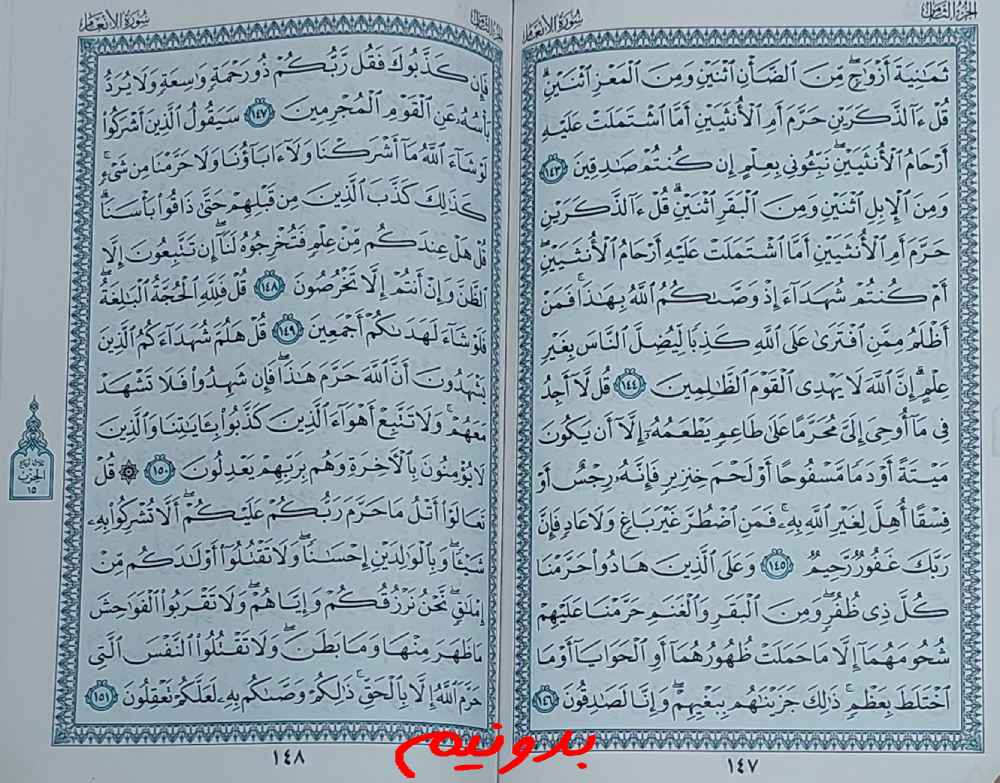 الجزء الثامن
سورة الأنعام
ثَمَٰنِيَةَ أَزْوَٰجٍ مِّنَ ٱلضَّأْنِ ٱثْنَيْنِ وَمِنَ ٱلْمَعْزِ ٱثْنَيْنِ
قُلْ ءَآلذَّكَرَيْنِ حَرَّمَ أَمِ ٱلْأُنثَيَيْنِ أَمَّا ٱشْتَمَلَتْ عَلَيْهِ
أَرْحَامُ ٱلْأُنثَيَيْنِ نَبِّـُٔونِى بِعِلْمٍ إِن كُنتُمْ صَٰدِقِينَ ١٤٣
وَمِنَ ٱلْإِبِلِ ٱثْنَيْنِ وَمِنَ ٱلْبَقَرِ ٱثْنَيْنِ قُلْ ءَآلذَّكَرَيْنِ
حَرَّمَ أَمِ ٱلْأُنثَيَيْنِ أَمَّا ٱشْتَمَلَتْ عَلَيْهِ أَرْحَامُ ٱلْأُنثَيَيْنِ
أَمْ كُنتُمْ شُهَدَآءَ إِذْ وَصَّىٰكُمُ ٱللَّهُ بِهَٰذَا فَمَنْ
أَظْلَمُ مِمَّنِ ٱفْتَرَىٰ عَلَى ٱللَّهِ كَذِبًا لِّيُضِلَّ ٱلنَّاسَ بِغَيْرِ
عِلْمٍ إِنَّ ٱللَّهَ لَا يَهْدِى ٱلْقَوْمَ ٱلظَّٰلِمِينَ ١٤٤ قُل لَّآ أَجِدُ
فِى مَآ أُوحِىَ إِلَىَّ مُحَرَّمًا عَلَىٰ طَاعِمٍ يَطْعَمُهُۥٓ إِلَّآ أَن يَكُونَ
مَيْتَةً أَوْ دَمًا مَّسْفُوحًا أَوْ لَحْمَ خِنزِيرٍ فَإِنَّهُۥ رِجْسٌ أَوْ
فِسْقًا أُهِلَّ لِغَيْرِ ٱللَّهِ بِهِۦ فَمَنِ ٱضْطُرَّ غَيْرَ بَاغٍ وَلَا عَادٍ فَإِنَّ
رَبَّكَ غَفُورٌ رَّحِيمٌ ١٤٥ وَعَلَى ٱلَّذِينَ هَادُوا۟ حَرَّمْنَا
كُلَّ ذِى ظُفُرٍ وَمِنَ ٱلْبَقَرِ وَٱلْغَنَمِ حَرَّمْنَا عَلَيْهِمْ
شُحُومَهُمَآ إِلَّا مَا حَمَلَتْ ظُهُورُهُمَآ أَوِ ٱلْحَوَايَآ أَوْ مَا
ٱخْتَلَطَ بِعَظْمٍ ذَٰلِكَ جَزَيْنَٰهُم بِبَغْيِهِمْ وَإِنَّا لَصَٰدِقُونَ ١٤٦
١٤٧
الجزء الثامن
سورة الأنعام
فَإِن كَذَّبُوكَ فَقُل رَّبُّكُمْ ذُو رَحْمَةٍ وَٰسِعَةٍ وَلَا يُرَدُّ
بَأْسُهُۥ عَنِ ٱلْقَوْمِ ٱلْمُجْرِمِينَ ١٤٧ سَيَقُولُ ٱلَّذِينَ أَشْرَكُوا۟
لَوْ شَآءَ ٱللَّهُ مَآ أَشْرَكْنَا وَلَآ ءَابَآؤُنَا وَلَا حَرَّمْنَا مِن شَىْءٍ
كَذَٰلِكَ كَذَّبَ ٱلَّذِينَ مِن قَبْلِهِمْ حَتَّىٰ ذَاقُوا۟ بَأْسَنَا
قُلْ هَلْ عِندَكُم مِّنْ عِلْمٍ فَتُخْرِجُوهُ لَنَآ إِن تَتَّبِعُونَ إِلَّا
ٱلظَّنَّ وَإِنْ أَنتُمْ إِلَّا تَخْرُصُونَ ١٤٨ قُلْ فَلِلَّهِ ٱلْحُجَّةُ ٱلْبَٰلِغَةُ
فَلَوْ شَآءَ لَهَدَىٰكُمْ أَجْمَعِينَ ١٤٩ قُلْ هَلُمَّ شُهَدَآءَكُمُ ٱلَّذِينَ
يَشْهَدُونَ أَنَّ ٱللَّهَ حَرَّمَ هَٰذَا فَإِن شَهِدُوا۟ فَلَا تَشْهَدْ
مَعَهُمْ وَلَا تَتَّبِعْ أَهْوَآءَ ٱلَّذِينَ كَذَّبُوا۟ بِـَٔايَٰتِنَا وَٱلَّذِينَ
لَا يُؤْمِنُونَ بِٱلْءَاخِرَةِ وَهُم بِرَبِّهِمْ يَعْدِلُونَ ١٥٠ ۞ قُلْ
تَعَالَوْا۟ أَتْلُ مَا حَرَّمَ رَبُّكُمْ عَلَيْكُمْ أَلَّا تُشْرِكُوا۟ بِهِۦ
شَيْـًٔا وَبِٱلْوَٰلِدَيْنِ إِحْسَٰنًا وَلَا تَقْتُلُوٓا۟ أَوْلَٰدَكُم مِّنْ
إِمْلَٰقٍ نَّحْنُ نَرْزُقُكُمْ وَإِيَّاهُمْ وَلَا تَقْرَبُوا۟ ٱلْفَوَٰحِشَ
مَا ظَهَرَ مِنْهَا وَمَا بَطَنَ وَلَا تَقْتُلُوا۟ ٱلنَّفْسَ ٱلَّتِى
حَرَّمَ ٱللَّهُ إِلَّا بِٱلْحَقِّ ذَٰلِكُمْ وَصَّىٰكُم بِهِۦ لَعَلَّكُمْ تَعْقِلُونَ ١٥١
١٤٨
ثلاثة أرباع
الحزب
١٥
بدونيم